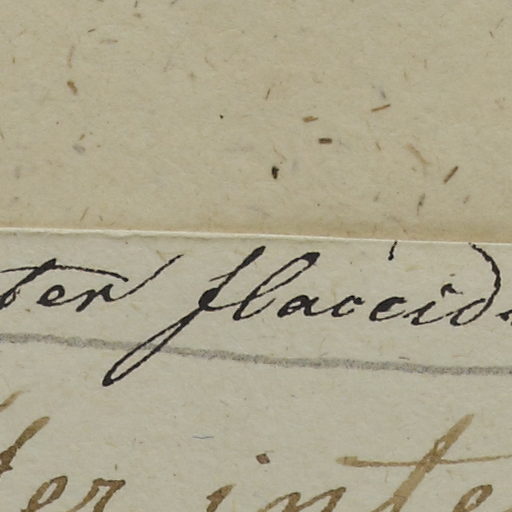 ter flaccid
ter inte